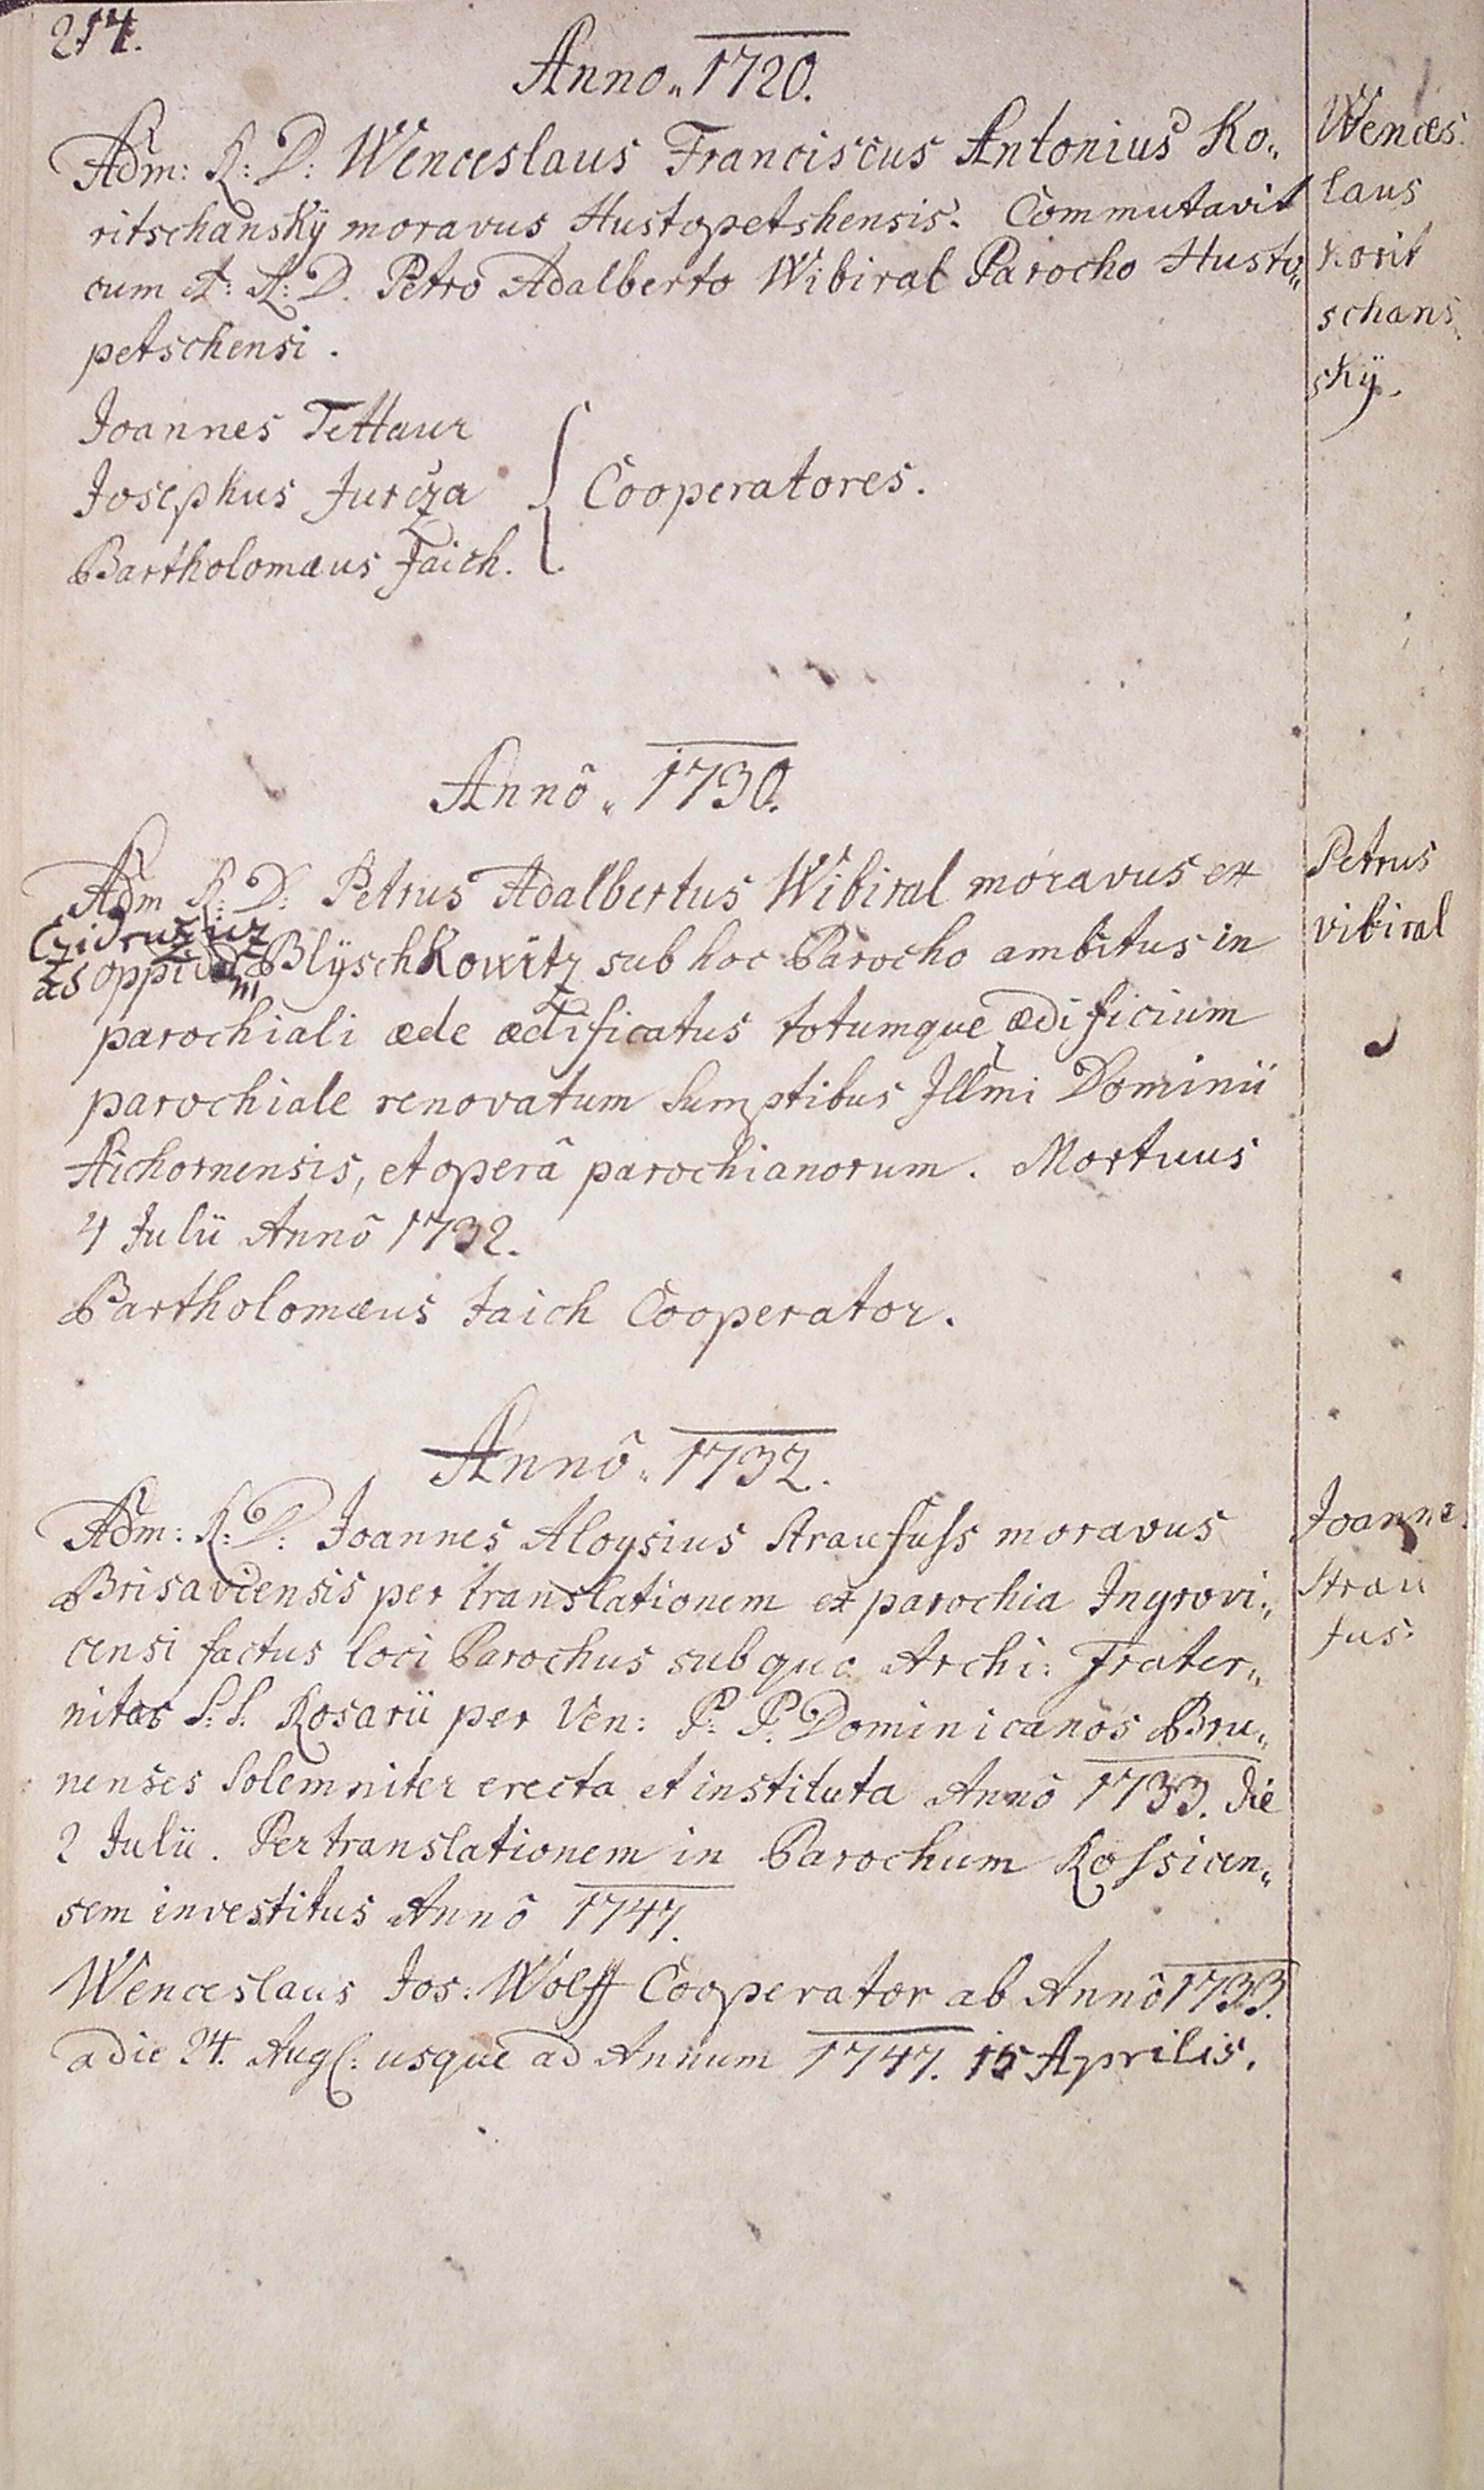 214.
Anno„ 1720.
Adm: R: D: Wenceslaus Franciscus Antonius Ko„
ritschanskÿ moravus Hustopetshensis. Commutavit
cum A: R: D. Petro Adalberto Wibiral Parocho Husto„
petschensi.
Wences.
laus
Korit
schans„
skÿ.
Joannes Tettaur
Josephus Jurcza
Bartholomæus Jaich.
Cooperatores.
Annô„ 1730.
Adm R: D: Petrus Adalbertus Wibiral moravus ex
oppido BlÿschKowitz sub hoc Parocho ambitus in
parochiali æde ædificatus totumque ædificium
parochiale renovatum Sumptibus Illmi Dominii
Aichornensis, et operâ parochianorum. Mortuus
4 Julii Annô 1732.
Bartholomæus Jaich Cooperator.
Petrus
vibiral
Annô„ 1732.
Adm: R: D: Joannes Aloysius Straufuss moravus
Brisaviensis per translationem ex parochia Ingrovi„
censi factus loci Parochus sub quo Archi: Frater„
nitas S: S. Rosarii per Ven: P: P: Dominicanos Bru„
nenses Solemniter erecta et instituta Annô 1733. die
2 Julii. Per translationem in Parochum Rossicen„
sem investitus Annô 1747.
Wenceslaus Jos: Wolff Cooperator ab Annô 1733.
a die 24. Aug: usque ad Annum 1747. 15 Aprilis.
Joannes
Strau
fus.